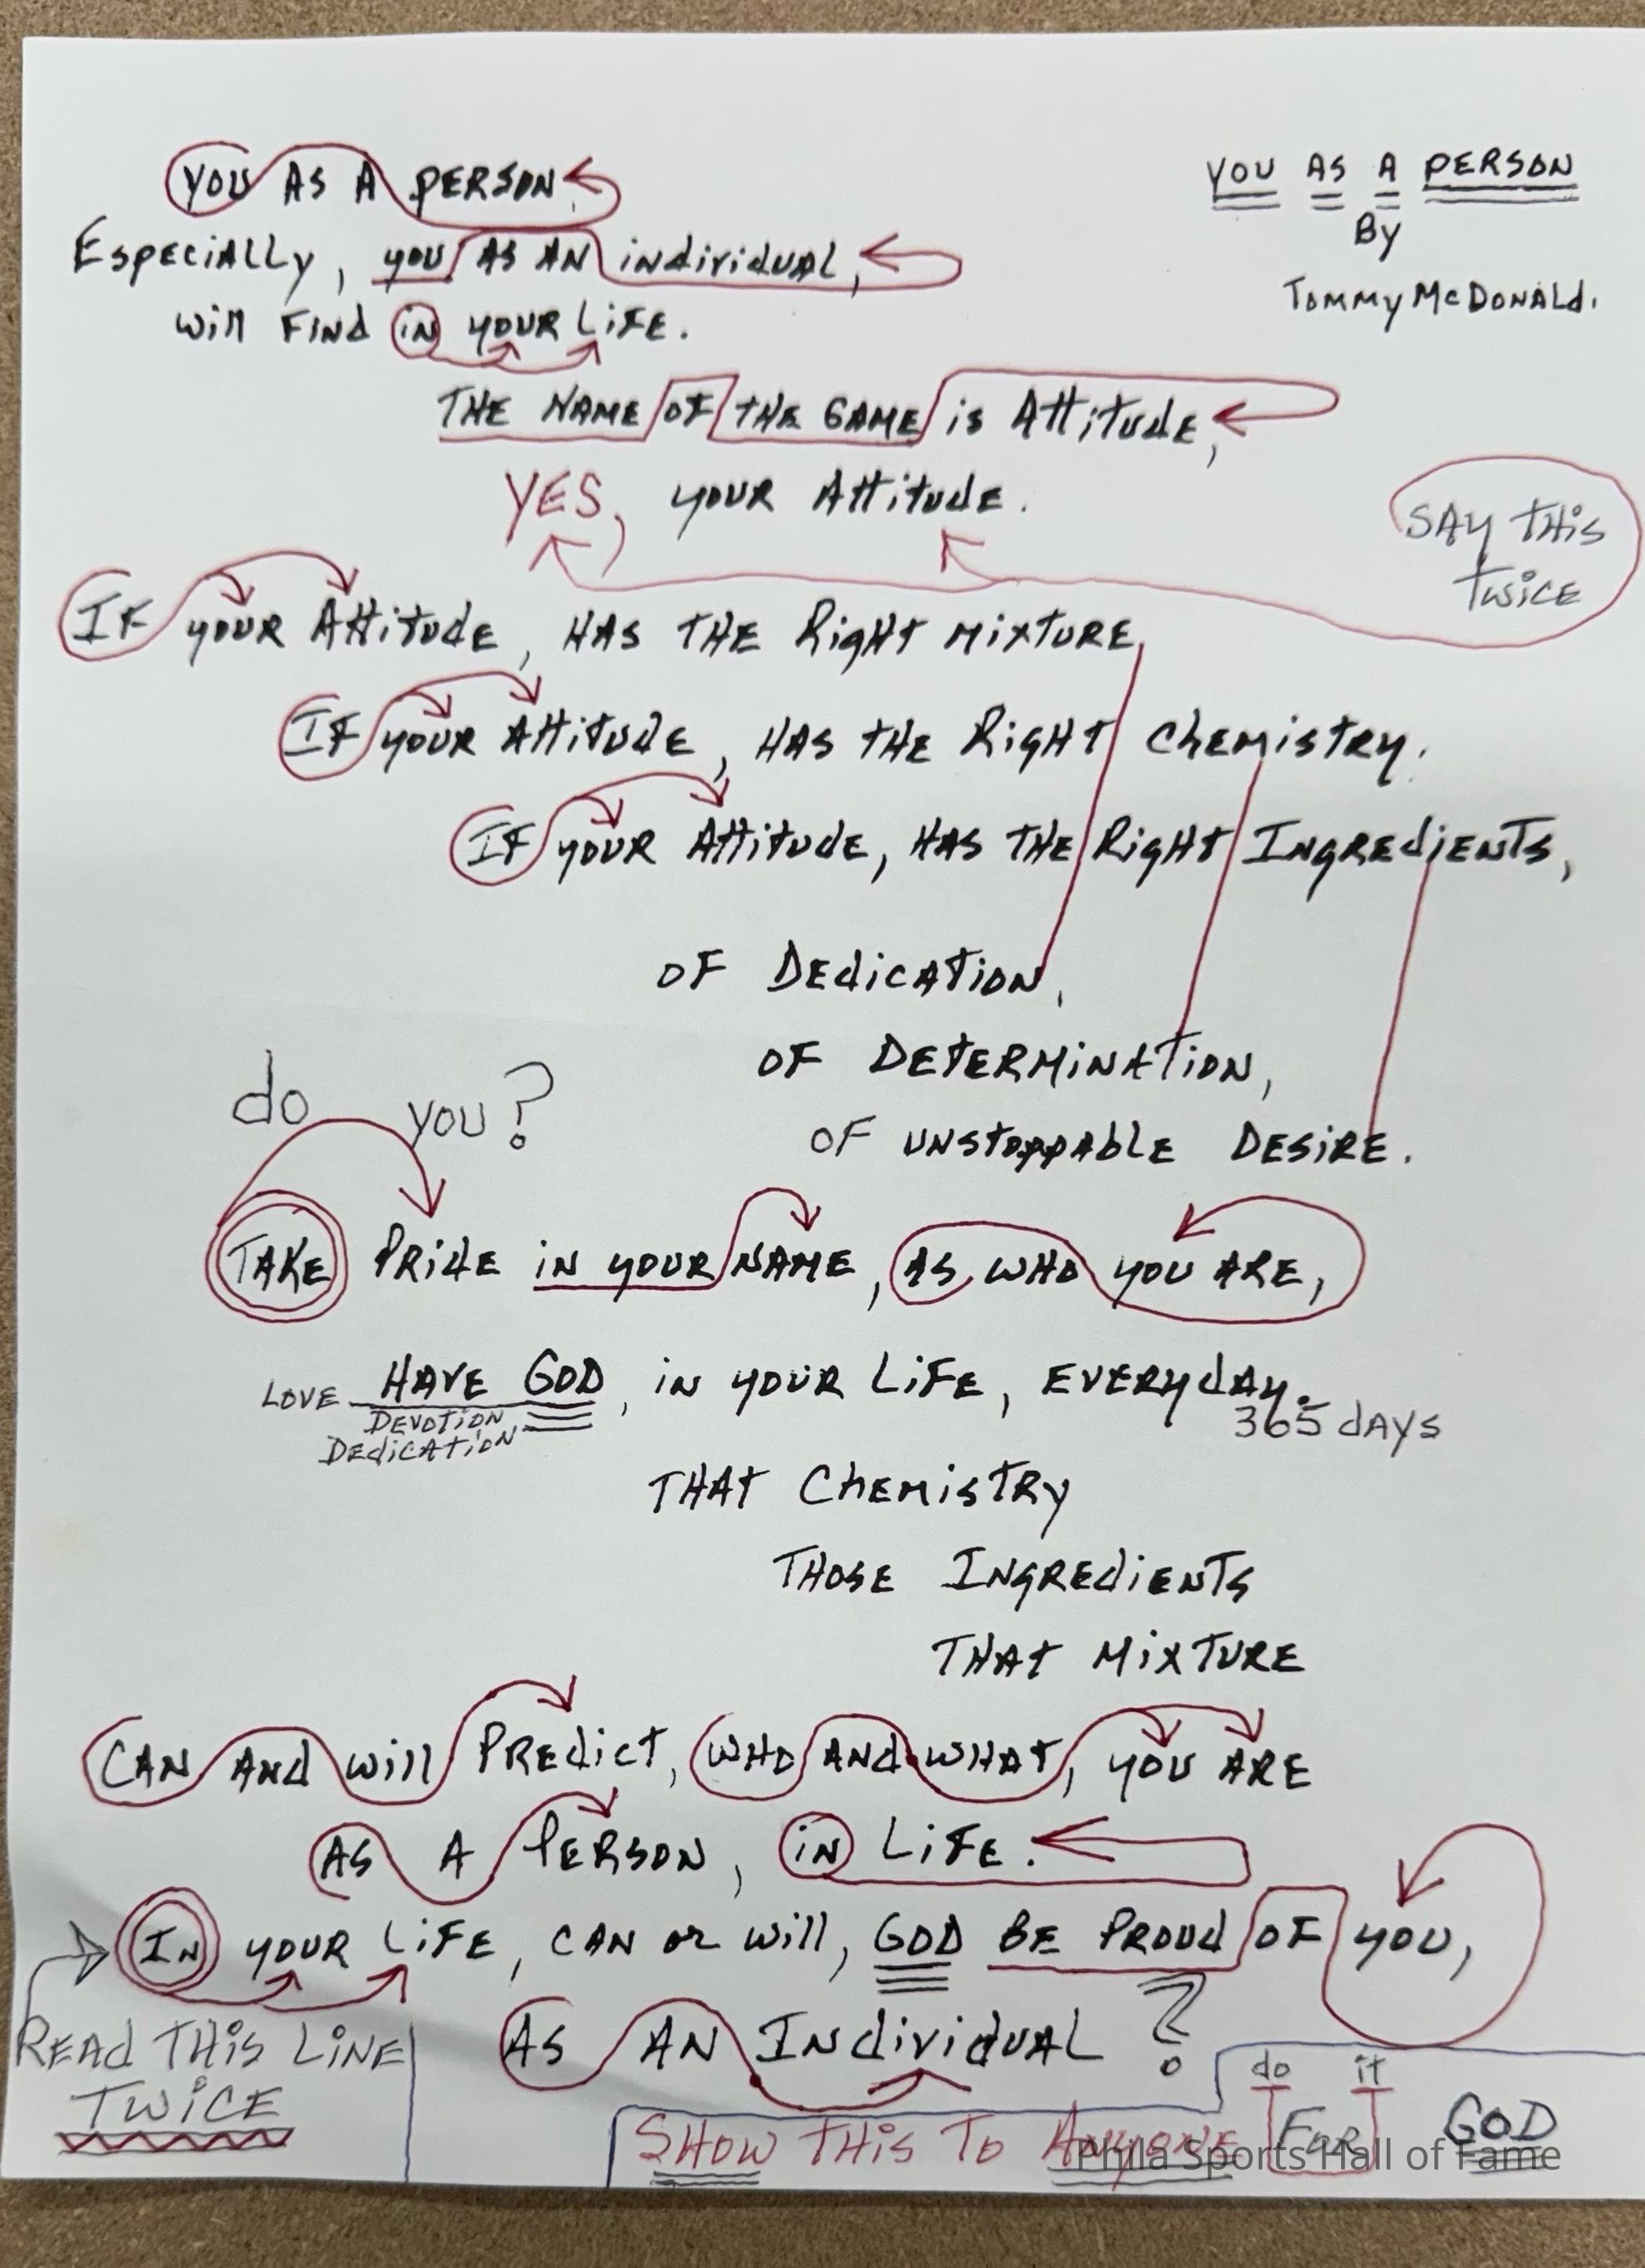 YOU AS A PERSON
By
Tommy McDonald.
YOU AS A PERSON,
Especially, you AS AN individual,
will Find in your Life.
THE NAME OF THE GAME is Attitude,
YES, your Attitude.
SAY THIS
TWICE
IF your Attitude, HAS THE Right MIXTURE,
IF your Attitude, HAS THE Right Chemistry.
IF your Attitude, HAS THE Right INGREDIENTS,
OF DEDICATION,
OF DETERMINATION,
OF UNSTOPPABLE DESIRE.
do you?
TAKE PRIDE in your NAME, AS WHO YOU ARE,
LOVE HAVE GOD, in your LIFE, EVERYDAY.
DEVOTION
DEDICATION
365 days
THAT CHEMISTRY
THOSE INGREDIENTS
THAT MIXTURE
CAN AND Will PREDICT, WHO AND WHAT, YOU ARE
AS A PERSON, in LIFE.
IN YOUR LIFE, CAN or will, GOD BE PROUD OF YOU,
AS AN INDIVIDUAL ?
READ THIS LINE
TWICE
SHOW THIS TO ANYONE do it FOR GOD
Phila Sports Hall of Fame